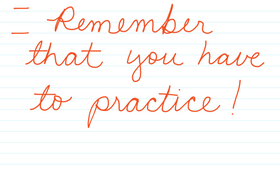 = Remember
that you have
to practice!